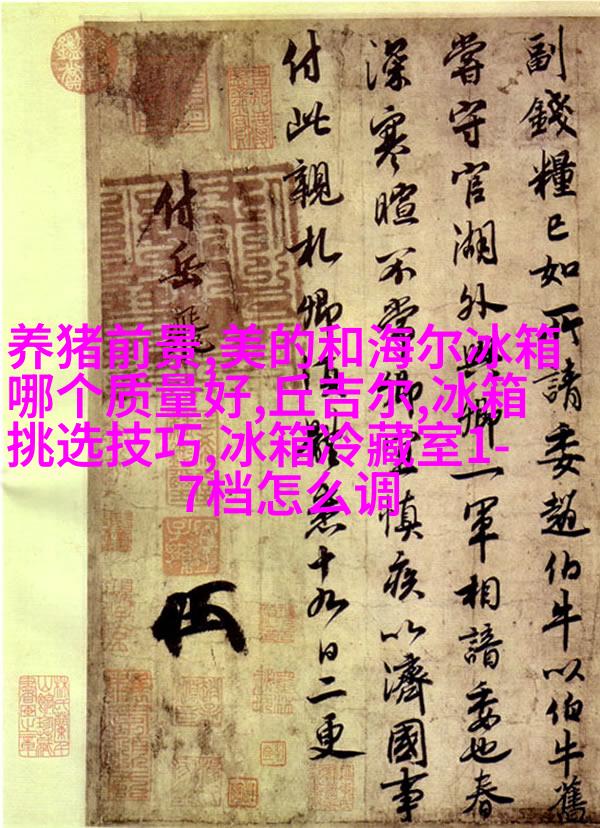 养猪前景,美的和海尔冰箱
哪个质量好,丘吉尔,冰箱
挑选技巧,冰箱冷藏室1-
7档怎么调
副錢糧已如所請委趙伯牛以伯牛舊
嘗守官湖外與卿一軍相諳委也春
深寒暄不常卿宜慎疾以濟國事
付此親札卿須體悉十九日二更
付岳飛